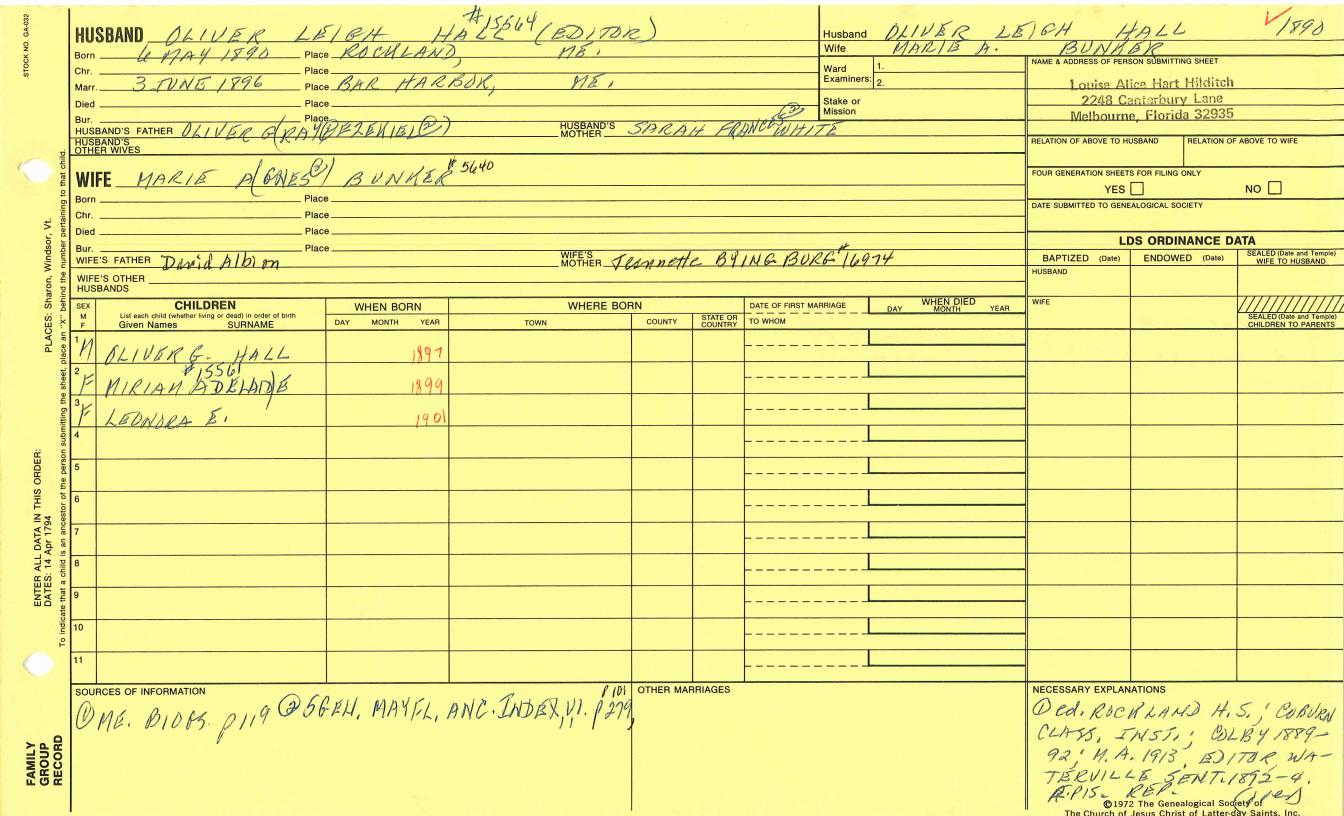 STOCK NO. GA-032
#15564
HUSBAND OLIVER LEIGH HALL (EDITOR)
Born 6 MAY 1890 Place ROCKLAND, ME.
Chr. Place
Marr. 3 JUNE 1896 Place BAR HARBOR, ME.
Died Place
Bur. Place
HUSBAND'S FATHER OLIVER G(RAY)(EZEKIEL②) HUSBAND'S MOTHER SARAH FRANCES② WHITE
HUSBAND'S OTHER WIVES
Husband OLIVER LEIGH HALL 1890
Wife MARIE A. BUNKER
Ward Examiners: 1.
2.
Stake or Mission
NAME & ADDRESS OF PERSON SUBMITTING SHEET
Louise Alice Hart Hilditch
2248 Canterbury Lane
Melbourne, Florida 32935
RELATION OF ABOVE TO HUSBAND RELATION OF ABOVE TO WIFE
FOUR GENERATION SHEETS FOR FILING ONLY
YES NO
DATE SUBMITTED TO GENEALOGICAL SOCIETY
WIFE MARIE A(GNES②) BUNKER #5640
Born Place
Chr. Place
Died Place
Bur. Place
WIFE'S FATHER David Albion WIFE'S MOTHER Jeannette BYINGBURG #16974
WIFE'S OTHER HUSBANDS
LDS ORDINANCE DATA
BAPTIZED (Date) ENDOWED (Date) SEALED (Date and Temple) WIFE TO HUSBAND
HUSBAND
WIFE
SEALED (Date and Temple) CHILDREN TO PARENTS
SEX M F CHILDREN WHEN BORN WHERE BORN DATE OF FIRST MARRIAGE WHEN DIED
List each child (whether living or dead) in order of birth
Given Names SURNAME DAY MONTH YEAR TOWN COUNTY STATE OR COUNTRY TO WHOM DAY MONTH YEAR
1 M OLIVER G. HALL 1897
#1556
2 F MIRIAM ADELAIDE 1899
3 F LEONORA E. 1901
4
5
6
7
8
9
10
11
SOURCES OF INFORMATION
① ME. BIOGS. p119 ② 5GEN. MAYFL, ANC. INDEX, V1. p279, P101
OTHER MARRIAGES
NECESSARY EXPLANATIONS
① ed. ROCKLAND H.S.; COBURN
CLASS. INST.; COLBY 1889-
92; M.A. 1913, EDITOR, WA-
TERVILLE SENT. 1892-4.
REP.
©1972 The Genealogical Society of
The Church of Jesus Christ of Latter-day Saints, Inc.
FAMILY GROUP RECORD
ENTER ALL DATA IN THIS ORDER:
DATES: 14 Apr 1794
PLACES: Sharon, Windsor, Vt.
To indicate that a child is an ancestor of the person submitting the sheet, place an "X" behind the number pertaining to that child.